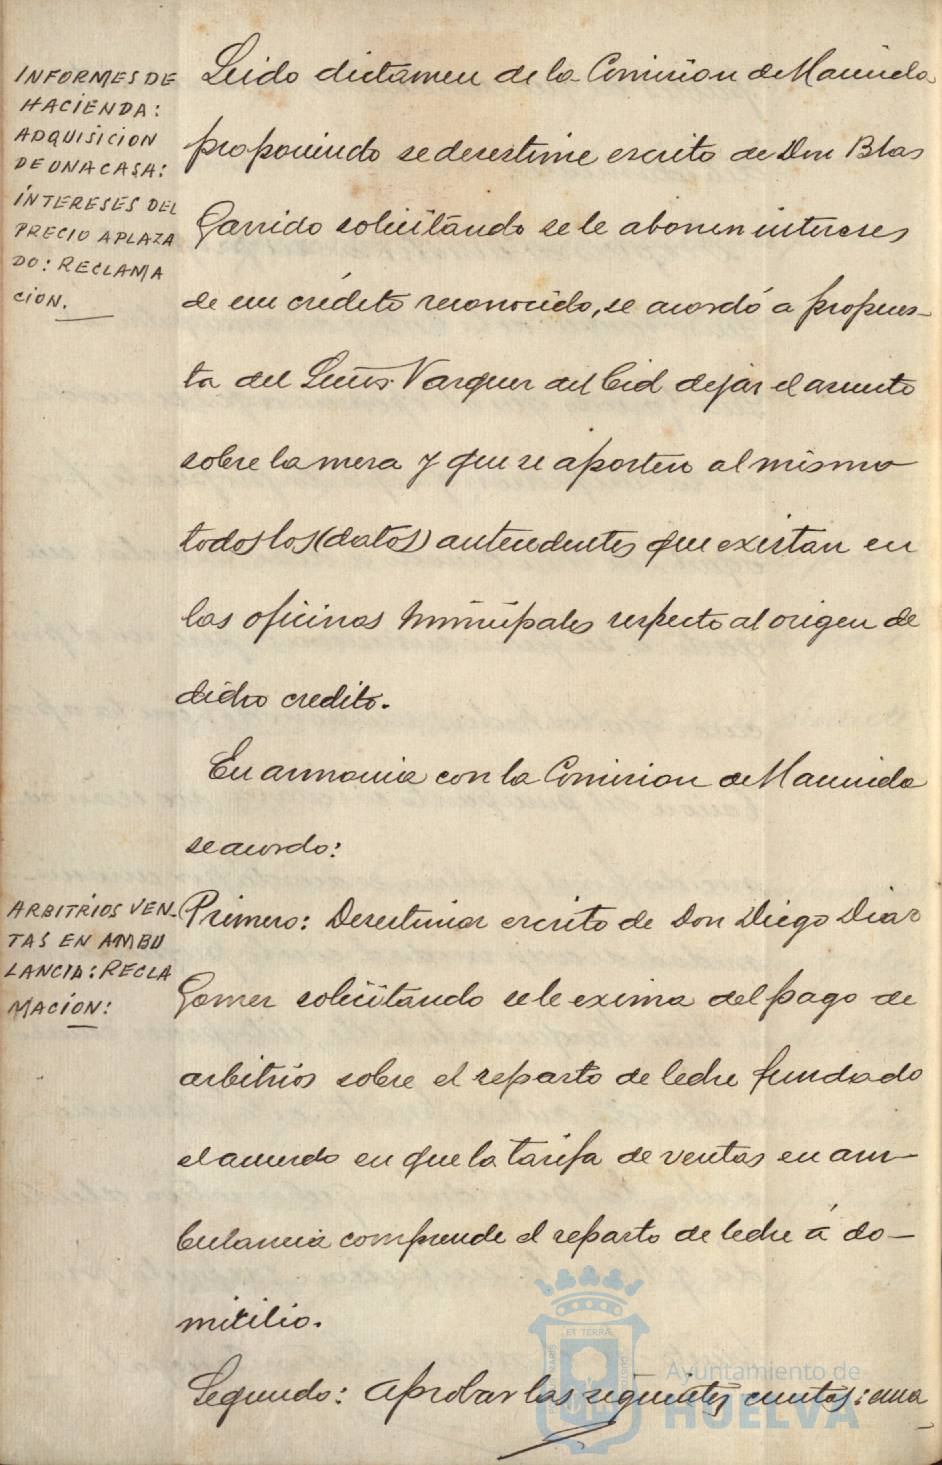 INFORMES DE
HACIENDA:
ADQUISICION
DE UNA CASA:
INTERESES DEL
PRECIO APLAZA
DO: RECLAMA
CION.
Leido dictamen de la Comision de Hacienda
proponiendo se desestime escrito de Don Blas
Garrido solicitando se le abonen intereses
de un crédito reconocido, se acordó á propues-
ta del Señor Vazquez del Cid dejar el asunto
sobre la mesa y que se aporten al mismo
todos los (datos) antecedentes que existan en
las oficinas municipales respecto al origen de
dicho credito.
En armonia con la Comision de Hacienda
se acordo:
ARBITRIOS VEN-
TAS EN AMBU
LANCIA: RECLA
MACION:
Primero: Desestimar escrito de Don Diego Diaz
Gomez solicitando se le exima del pago de
arbitrios sobre el reparto de leche fundado
el acuerdo en que la tarifa de ventas en am-
bulancia comprende el reparto de leche á do-
micilio.
Segundo: Aprobar las siguientes cuentas: una
Ayuntamiento de
HUELVA